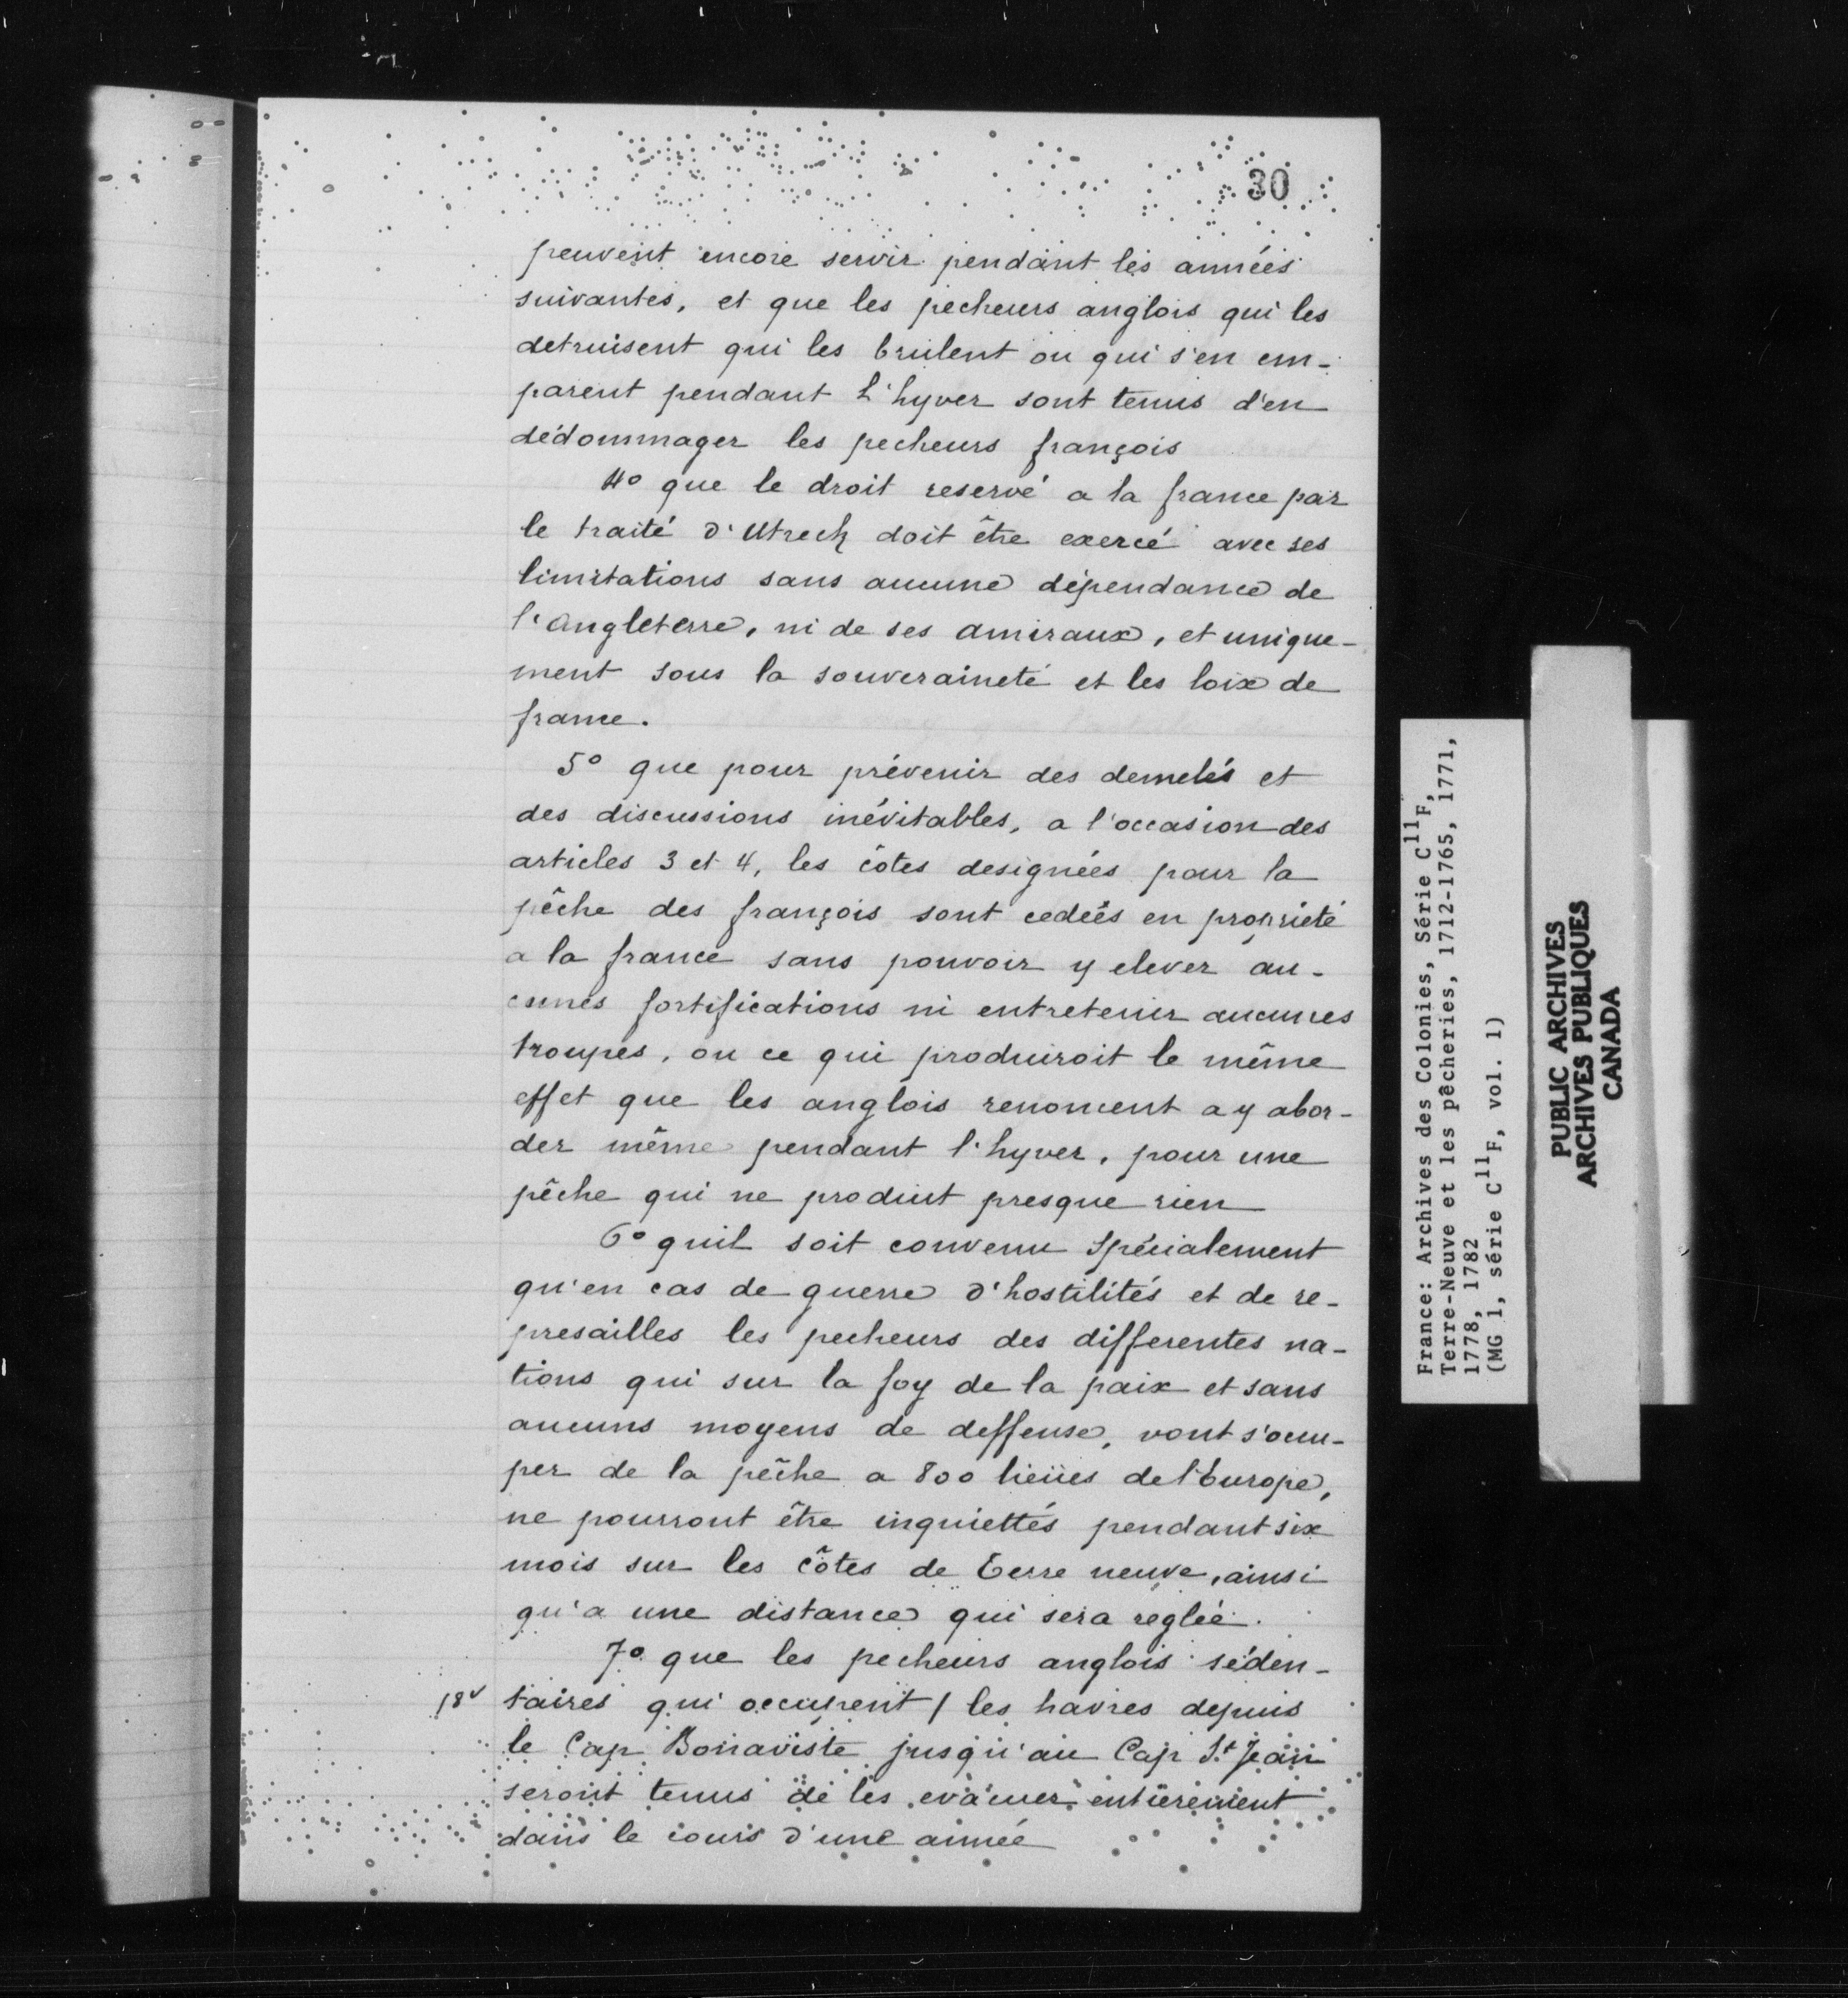 30
peuvent encore servir pendant les années
suivantes, et que les pecheurs anglois qui les
detruisent qui les brulent ou qui s'en em-
parent pendant l'hyver sont tenus d'en
dédommager les pecheurs françois
4º que le droit reservé a la france par
le traité d'Utrech doit être exercé avec ses
limitations sans aucune dépendance de
l'angleterre, ni de ses amiraux, et unique-
ment sous la souveraineté et les loix de
france.
5º que pour prévenir des demelés et
des discussions inévitables, a l'occasion des
articles 3 et 4, les côtes designées pour la
pêche des françois sont cedées en propriété
a la france sans pouvoir y elever au-
cunes fortifications ni entretenir aucunes
troupes, ou ce qui produiroit le même
effet que les anglois renoncent a y abor-
der même pendant l'hyver, pour une
pêche qui ne produit presque rien
6º quil soit convenu spécialement
qu'en cas de guerre d'hostilités et de re-
presailles les pecheurs des differentes na-
tions qui sur la foy de la paix et sans
aucuns moyens de deffense, vont s'occu-
per de la pêche a 800 lieües de l'Europe,
ne pourront être inquiettés pendant six
mois sur les côtes de Terre neuve, ainsi
qu'a une distance qui sera reglée.
7º que les pecheurs anglois séden-
18v taires qui occupent / les havres depuis
le Cap Bonaviste jusqu'au Cap St Jean
seront tenus de les evacuer entierement
dans le cours d'une année
France: Archives des Colonies, Série C11F,
Terre-Neuve et les pêcheries, 1712-1765, 1771,
1778, 1782
(MG 1, série C11F, vol. 1)
PUBLIC ARCHIVES
ARCHIVES PUBLIQUES
CANADA